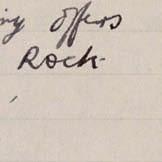 ny offers
Rock-